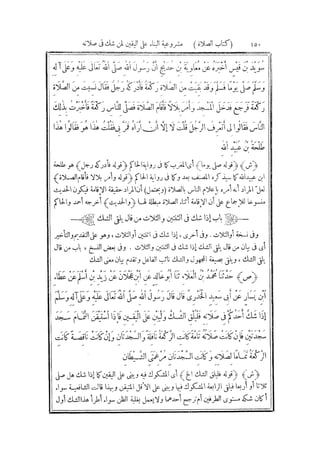 ١٥٠ (كتاب الصلاة) مشروعية البناء على اليقين لمن شك فى صلاته
سُوَيْدَ بْنَ قَيْسٍ أَخْبَرَهُ عَنْ مُعَاوِيَةَ بْنِ حُدَيْجٍ أَنَّ رَسُولَ اللهِ صَلَّى اللهُ تَعَالَى عَلَيْهِ وَعَلَى آلِهِ
وَسَلَّمَ صَلَّى يَوْمًا فَسَلَّمَ وَقَدْ بَقِيَتْ مِنَ الصَّلَاةِ رَكْعَةٌ فَأَدْرَكَهُ رَجُلٌ فَقَالَ نَسِيتَ مِنَ الصَّلَاةِ
رَكْعَةً فَرَجَعَ فَدَخَلَ الْمَسْجِدَ وَأَمَرَ بِلَالًا فَأَقَامَ الصَّلَاةَ فَصَلَّى لِلنَّاسِ رَكْعَةً فَأَخْبَرْتُ بِذَلِكَ
النَّاسَ فَقَالُوا لِى أَتَعْرِفُ الرَّجُلَ قُلْتُ لَا إِلَّا أَنْ أَرَاهُ فَمَرَّ بِى فَقُلْتُ هَذَا هُوَ فَقَالُوا هَذَا
طَلْحَةُ بْنُ عُبَيْدِ اللهِ
(ش) (قوله صلى يوما) أى المغرب كما فى رواية الحاكم (قوله فأدركه رجل) هو طلحة
ابن عبيد الله كما سيذكره المصنف بعد وكما فى رواية الحاكم (قوله وأمر بلالا فأقام الصلاة)
لعل المراد أنه أمره بإعلام الناس بالصلاة (ويحتمل) أن المراد حقيقة الإقامة فيكون الحديث
منسوخا للإجماع على أن الإقامة أثناء الصلاة مبطلة لها (والحديث) أخرجه أحمد والحاكم
باب إذا شك فى الثنتين والثلاث من قال يلقى الشك
وفى نسخة أوالثلاث. وفى أخرى، إذا شك فى الثنتين أوالثلاث، وهو على التقديم والتأخير
أى فى بيان من قال يلقى الشك إذا شك فى الثنتين والثلاث. وفى بعض النسخ، باب من قال
يلقى الشك، ويلقى بصيغة المجهول والشك نائب الفاعل وتقدم بيان معنى الشك
(ص) حَدَّثَنَا مُحَمَّدُ بْنُ الْعَلَاءِ ثَنَا أَبُو خَالِدٍ عَنِ ابْنِ عَجْلَانَ عَنْ زَيْدِ بْنِ أَسْلَمَ عَنْ عَطَاءِ
ابْنِ يَسَارٍ عَنْ أَبِى سَعِيدٍ الْخُدْرِىِّ قَالَ قَالَ رَسُولُ اللهِ صَلَّى اللهُ تَعَالَى عَلَيْهِ وَعَلَى آلِهِ وَسَلَّمَ
إِذَا شَكَّ أَحَدُكُمْ فِى صَلَاتِهِ فَلْيُلْقِ الشَّكَّ وَلْيَبْنِ عَلَى الْيَقِينِ فَإِذَا اسْتَيْقَنَ التَّمَامَ سَجَدَ
سَجْدَتَيْنِ فَإِنْ كَانَتْ صَلَاتُهُ تَامَّةً كَانَتِ الرَّكْعَةُ نَافِلَةً وَالسَّجْدَتَانِ وَإِنْ كَانَتْ نَاقِصَةً كَانَتِ
الرَّكْعَةُ تَمَامًا لِصَلَاتِهِ وَكَانَتِ السَّجْدَتَانِ مُرْغِمَتَىِ الشَّيْطَانِ
(ش) (قوله فليلق الشك الخ) أى المشكوك فيه ويبنى على اليقين كما إذا شك هل صلى
ثلاثا أو أربعا فيلق الرابعة المشكوك فيها ويبنى على الأقل المتيقن وبهذا قالت الشافعية سواء
أكان شكه مستوى الطرفين أم ترجح أحدهما ولا يعمل بغلبة الظن سواء أطرأ هذا الشك أول